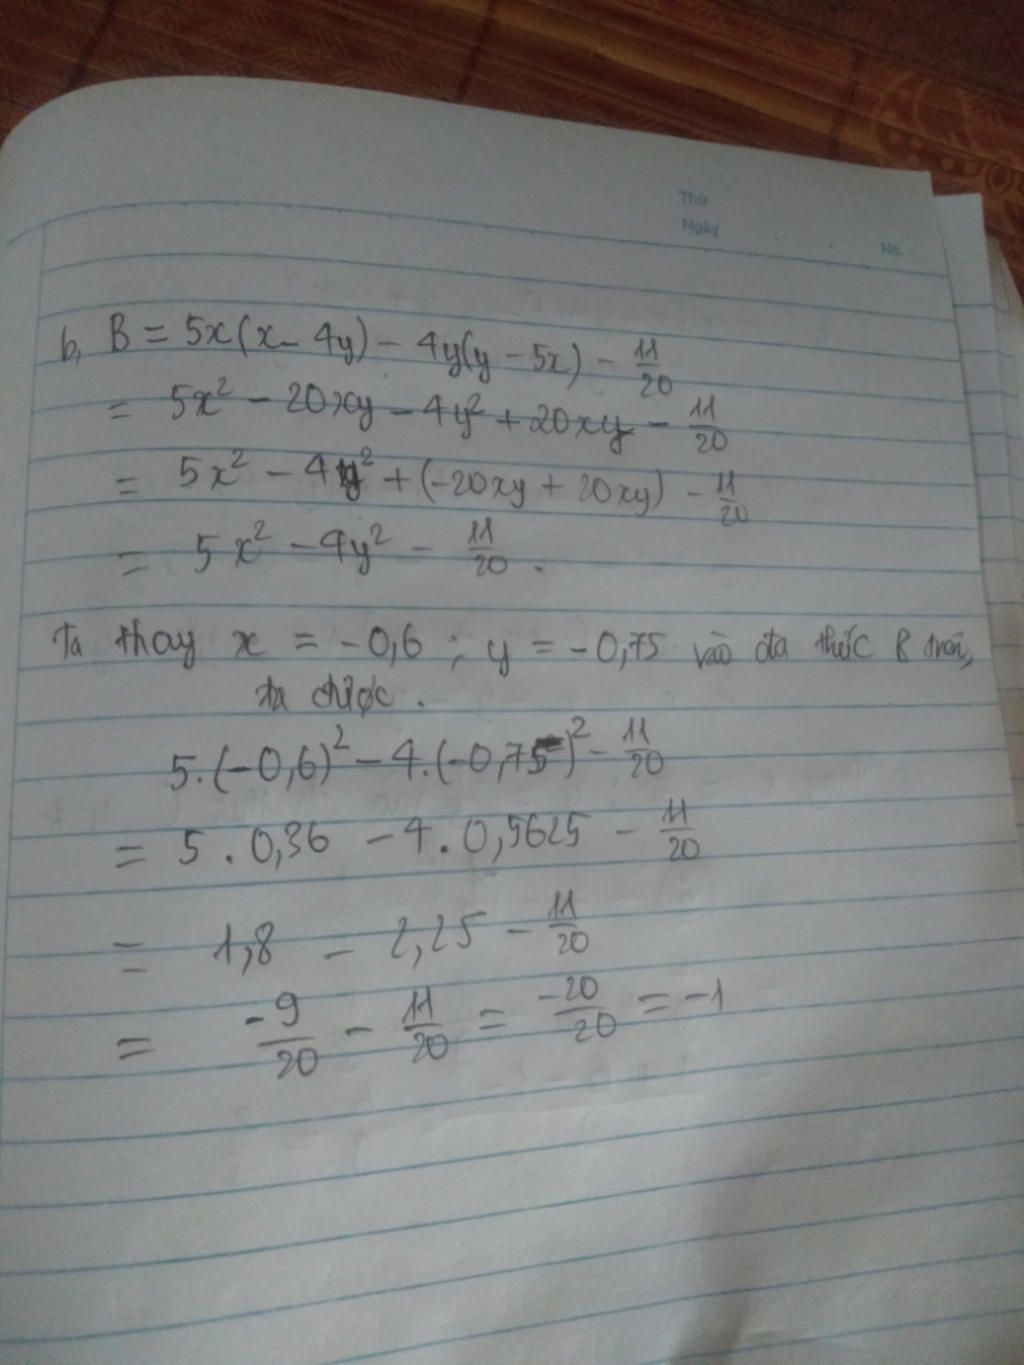 Thứ
Ngày
No.
b, B = 5x(x - 4y) - 4y(y - 5x) - 11/20
= 5x² - 20xy - 4y² + 20xy - 11/20
= 5x² - 4y² + (-20xy + 20xy) - 11/20
= 5x² - 4y² - 11/20 .
Ta thay x = -0,6 ; y = -0,75 vào đa thức B trên,
ta được .
5.(-0,6)² - 4.(-0,75)² - 11/20
= 5 . 0,36 - 4 . 0,5625 - 11/20
= 1,8 - 2,25 - 11/20
= -9/20 - 11/20 = -20/20 = -1